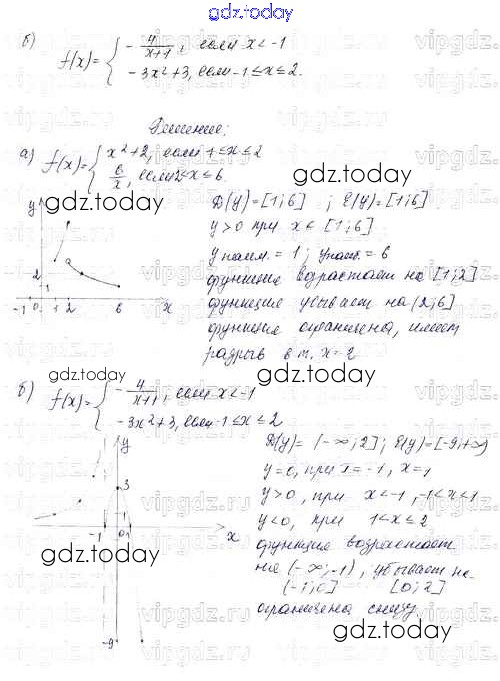 gdz.today
б) f(x) = { - 4/(x+1), если x < -1
-3x²+3, если -1 ≤ x ≤ 2.
Решение:
а) f(x) = { x²+2, если 1 ≤ x ≤ 2
6/x, если 2 < x ≤ 6.
gdz.today
D(y) = [1; 6] ; E(y) = [1; 6]
y > 0 при x ∈ [1; 6]
y наим. = 1; y наиб. = 6
функция возрастает на [1; 2]
функция убывает на (2; 6]
функция ограничена, имеет
разрыв в т. x = 2
y
2
1
-1 0 1 2 6 x
gdz.today
gdz.today
б) f(x) = { - 4/(x+1), если x < -1
-3x²+3, если -1 ≤ x ≤ 2
D(y) = (-∞; 2]; E(y) = [-9; +∞)
y = 0, при x = -1, x = 1
y > 0, при x < -1, -1 < x < 1
y < 0, при 1 < x ≤ 2
функция возрастает
на (-∞; -1), убывает на
(-1; 0] [0; 2]
ограничена снизу.
y
3
-1 0 1 x
-9
gdz.today
gdz.today
vipgdz.ru